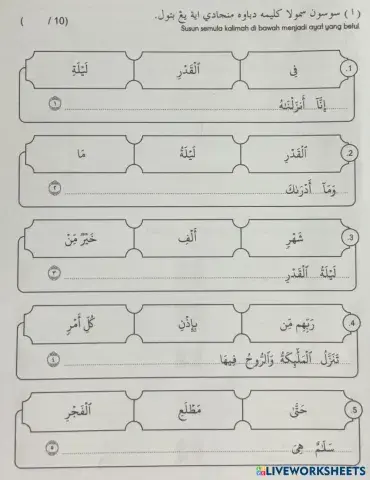 (١) سوسون سمولا كليمه دباوه منجادي اية يڠ بتول.
( /10)
Susun semula kalimah di bawah menjadi ayat yang betul.
1. فِى ٱلْقَدْرِ لَيْلَةِ
إِنَّآ أَنزَلْنَٰهُ ١
2. ٱلْقَدْرِ لَيْلَةُ مَا
وَمَآ أَدْرَىٰكَ ٢
3. شَهْرٍ أَلْفِ خَيْرٌ مِّنْ
لَيْلَةُ ٱلْقَدْرِ ٣
4. رَبِّهِم مِّن بِإِذْنِ كُلِّ أَمْرٍ
تَنَزَّلُ ٱلْمَلَٰٓئِكَةُ وَٱلرُّوحُ فِيهَا ٤
5. حَتَّىٰ مَطْلَعِ ٱلْفَجْرِ
سَلَٰمٌ هِىَ ٥
LIVEWORKSHEETS